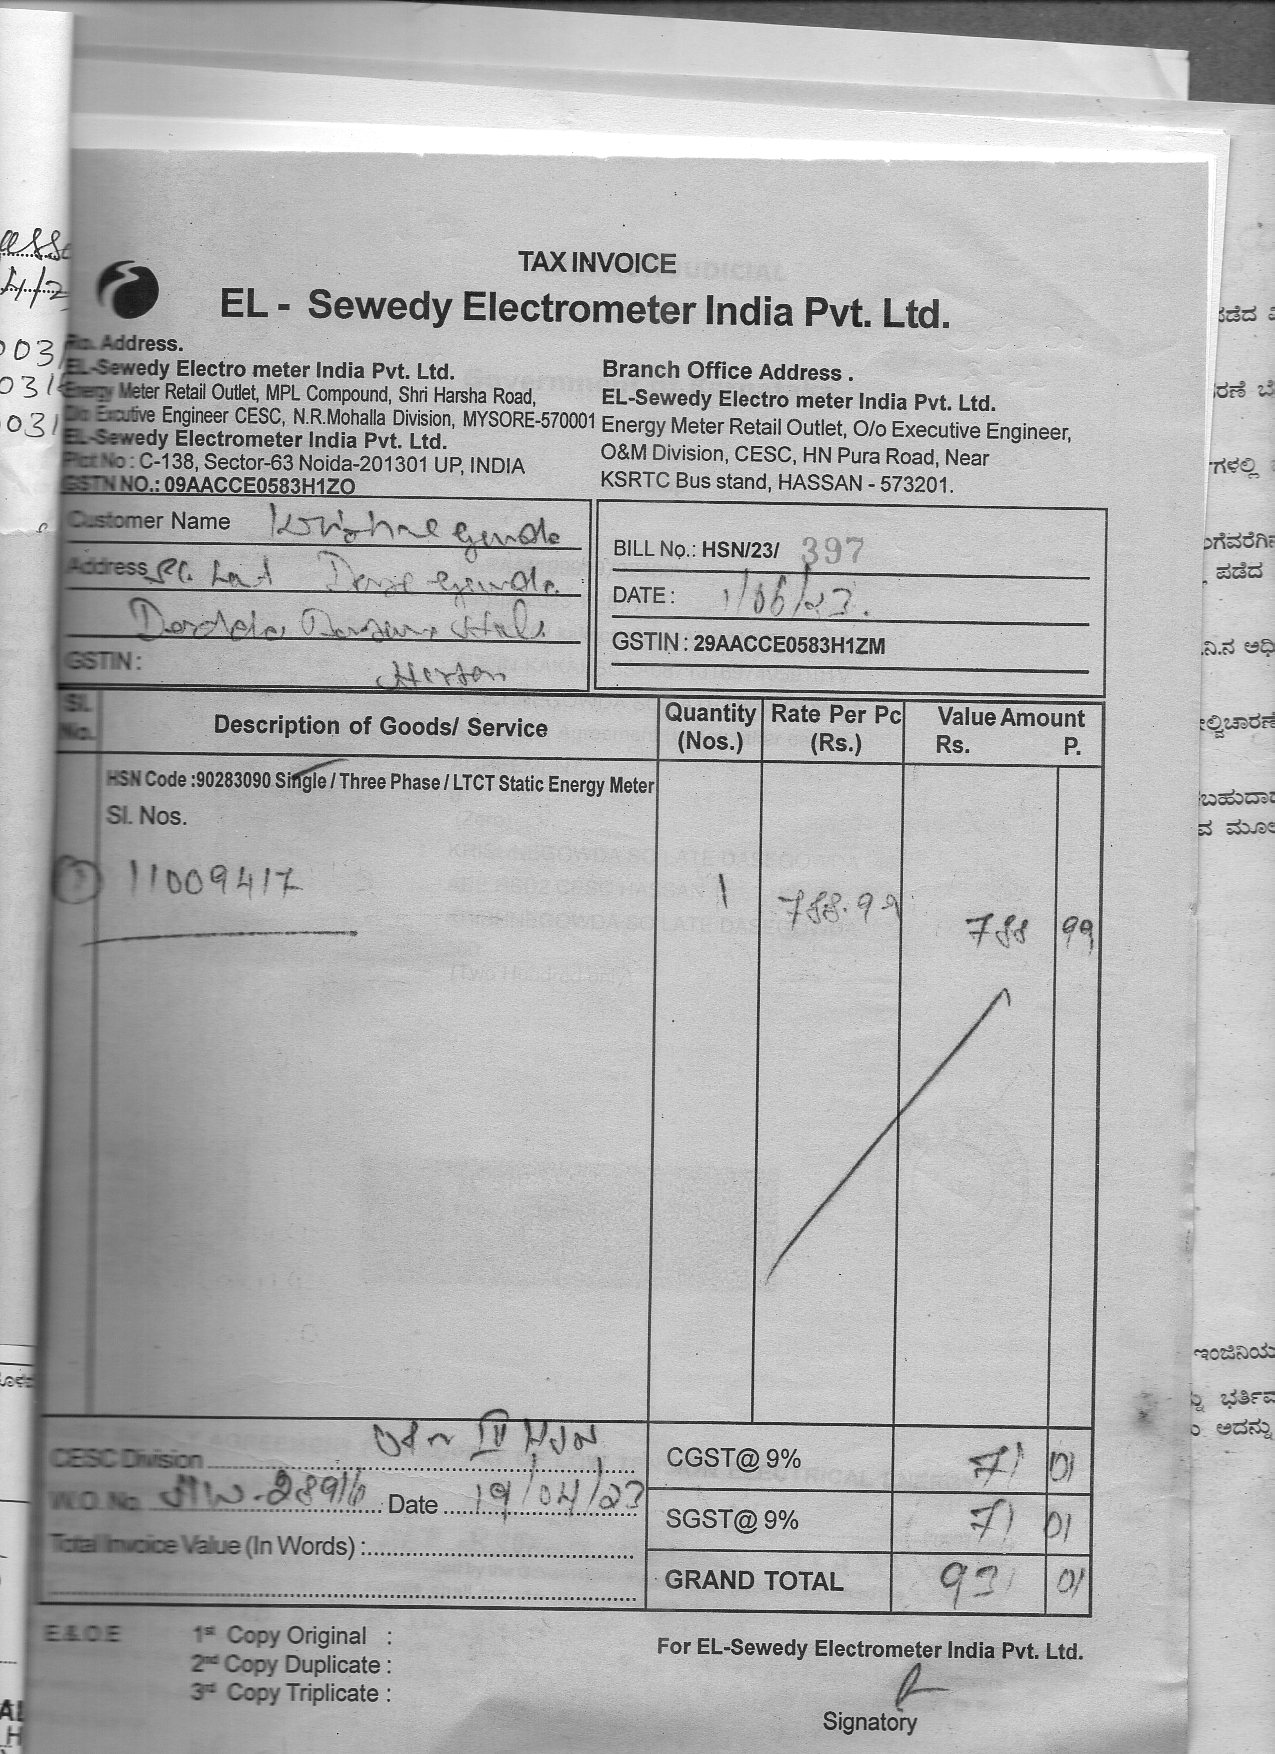 TAX INVOICE
EL - Sewedy Electrometer India Pvt. Ltd.
Ro. Address.
EL-Sewedy Electro meter India Pvt. Ltd.
Energy Meter Retail Outlet, MPL Compound, Shri Harsha Road,
O/o Excutive Engineer CESC, N.R.Mohalla Division, MYSORE-570001
EL-Sewedy Electrometer India Pvt. Ltd.
Plot No : C-138, Sector-63 Noida-201301 UP, INDIA
GSTN NO.: 09AACCE0583H1ZO
Branch Office Address .
EL-Sewedy Electro meter India Pvt. Ltd.
Energy Meter Retail Outlet, O/o Executive Engineer,
O&M Division, CESC, HN Pura Road, Near
KSRTC Bus stand, HASSAN - 573201.
Customer Name Krishne gowda
Address So. Late Dase gowda
GSTIN : Hassan
BILL No.: HSN/23/ 397
DATE : 1/06/23.
GSTIN : 29AACCE0583H1ZM
Sl. No. Description of Goods/ Service Quantity (Nos.) Rate Per Pc (Rs.) Value Amount Rs. P.
HSN Code :90283090 Single / Three Phase / LTCT Static Energy Meter
Sl. Nos.
11009417 1 788.99 788 99
CESC Division
W.O. No. 28916 Date 19/04/23
Total Invoice Value (In Words) :
CGST@ 9% 71 01
SGST@ 9% 71 01
GRAND TOTAL 931 01
E & O E
1st Copy Original :
2nd Copy Duplicate :
3rd Copy Triplicate :
For EL-Sewedy Electrometer India Pvt. Ltd.
Signatory